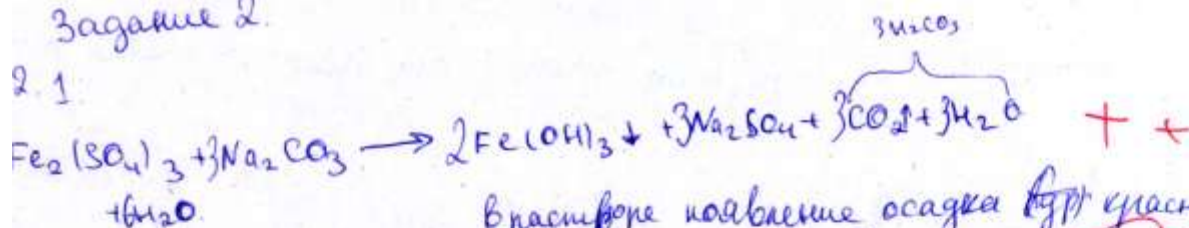 Задание 2.
3H₂CO₃
2.1.
Fe₂(SO₄)₃ + 3Na₂CO₃ → 2Fe(OH)₃↓ + 3Na₂SO₄ + 3CO₂↑ + 3H₂O + +
+6H₂O.
В растворе появление осадка красн